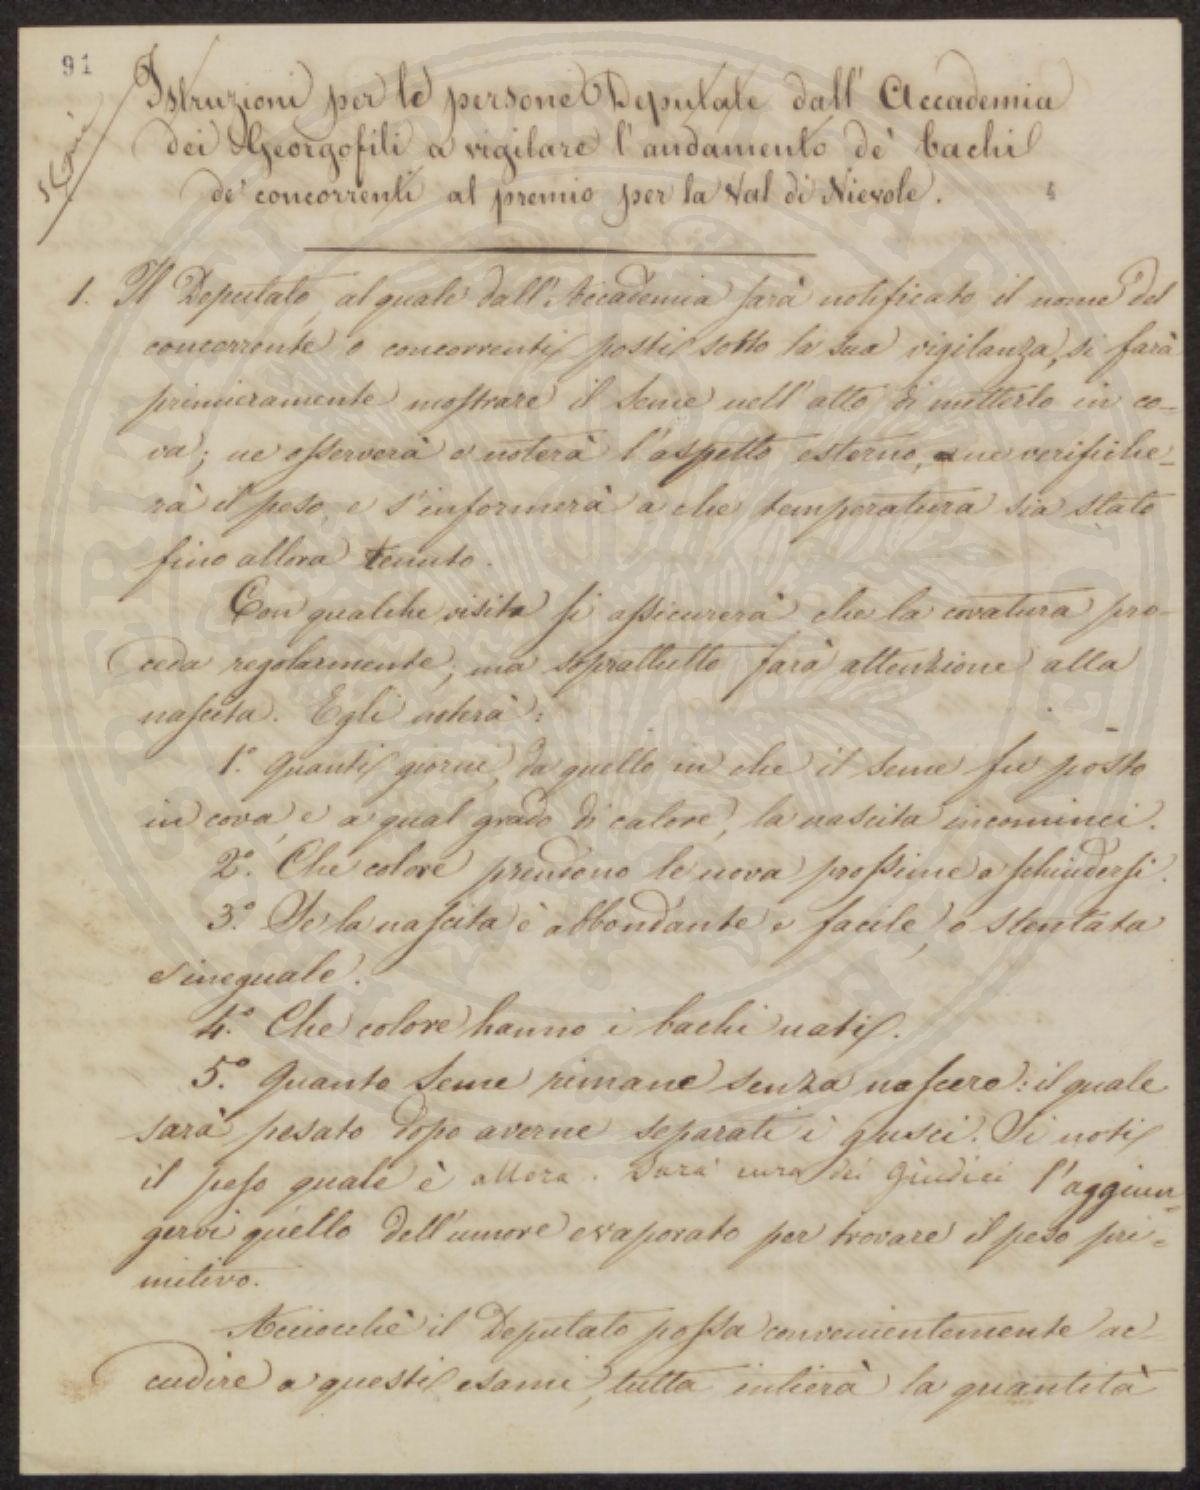 91
Istruzioni per le persone Deputate dall' Accademia
dei Georgofili a vigilare l'andamento de' bachi
de' concorrenti al premio per la Val di Nievole.
1. Il Deputato, al quale dall'Accademia sarà notificato il nome del
concorrente o concorrenti posti sotto la sua vigilanza, si farà
primieramente mostrare il seme nell'atto di metterlo in co-
va; ne osserverà e noterà l'aspetto esterno, ne verifiche-
rà il peso, e s'informerà a che temperatura sia stato
fino allora tenuto.
Con qualche visita si assicurerà che la covatura pro-
ceda regolarmente; ma soprattutto farà attenzione alla
nascita. Egli noterà:
1.° Quanti giorni, da quello in che il seme fu posto
in cova, e a qual grado di calore, la nascita incominci.
2.° Che colore prendono le uova prossime a schiudersi.
3.° Se la nascita è abbondante e facile, o stentata
e ineguale.
4.° Che colore hanno i bachi nati.
5.° Quanto seme rimane senza nascere: il quale
sarà pesato dopo averne separati i gusci. Si noti
il peso quale è allora. Sarà cura dei Giudici l'aggiun-
gervi quello dell'umore evaporato per trovare il peso pri-
mitivo.
Acciocchè il Deputato possa convenientemente ac-
cudire a questi esami, tutta intierà la quantità